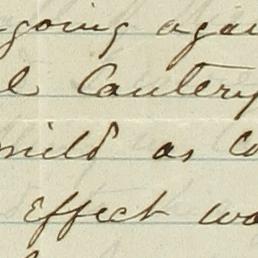 going agai
l Cautery
mild as co
Effect wa